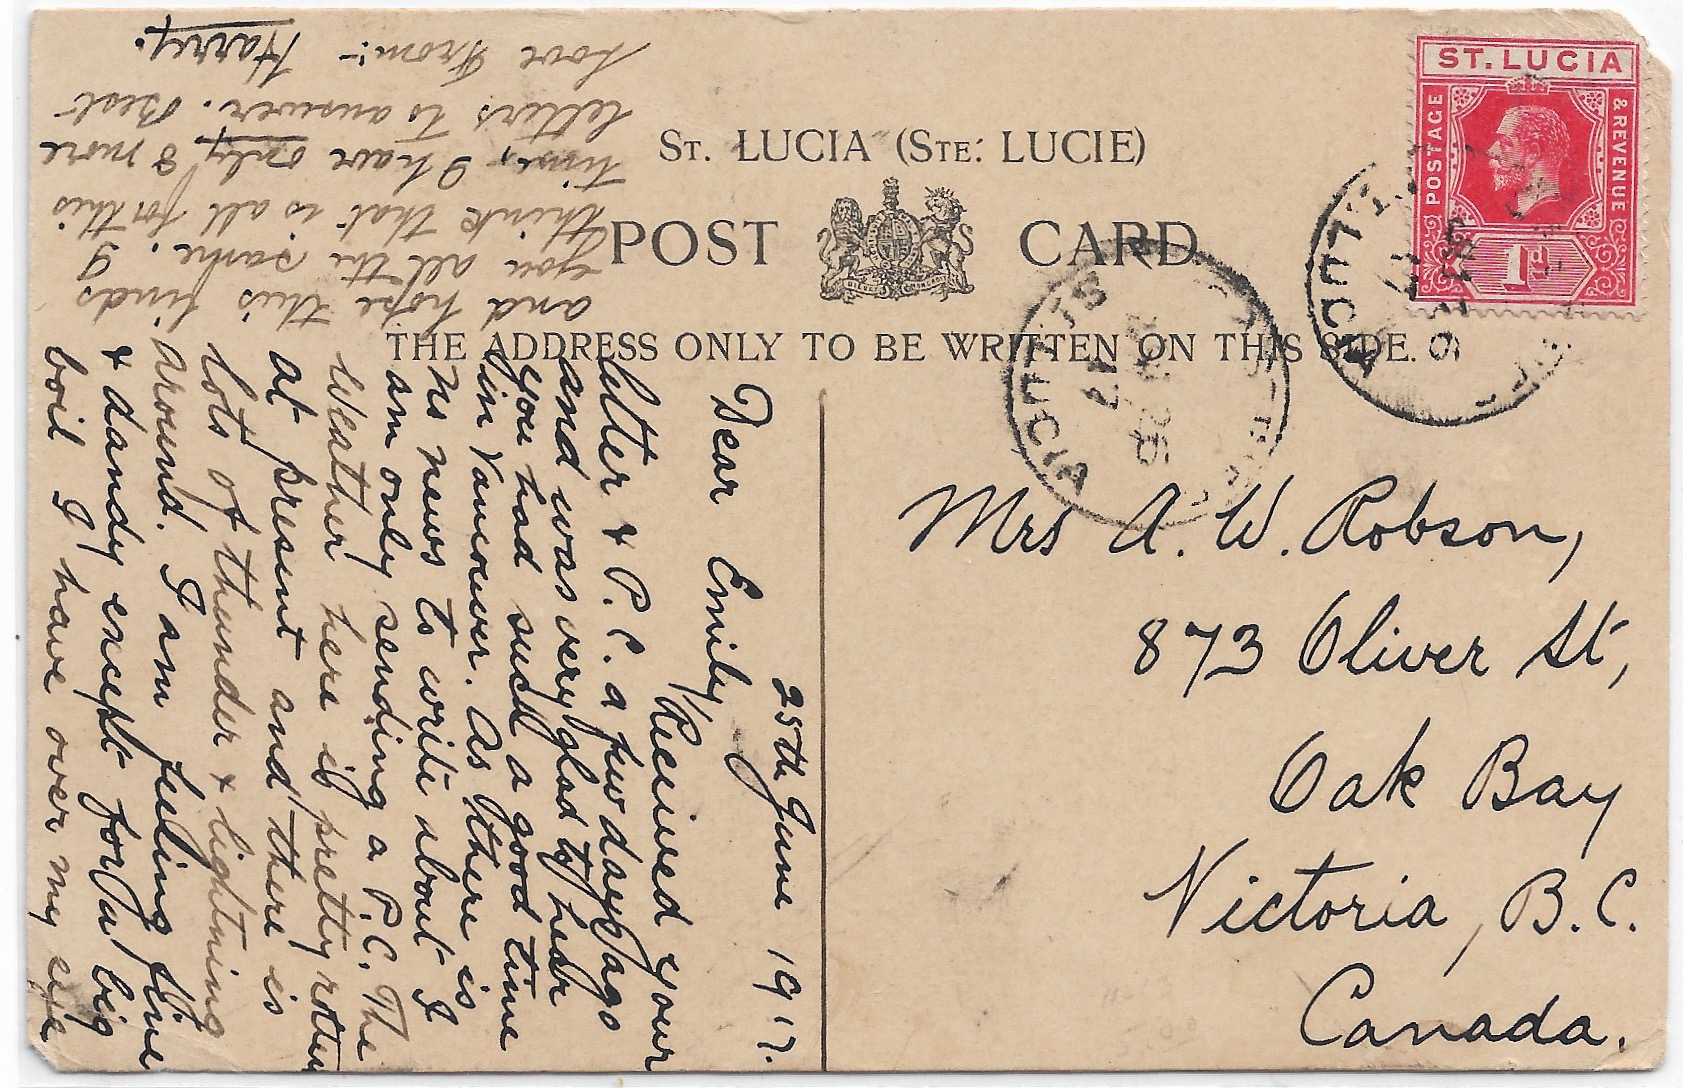 ST. LUCIA
POSTAGE
& REVENUE
1d
ST. LUCIA (STE. LUCIE)
POST CARD
THE ADDRESS ONLY TO BE WRITTEN ON THIS SIDE.
ST. LUCIA
ST. LUCIA
Mrs A. W. Robson,
873 Oliver St,
Oak Bay
Victoria, B.C.
Canada.
25th June 1917.
Dear Emily,
Received your
letter & P.C. a few days ago
and was very glad to hear
you had such a good time
in Vancouver. As there is
no news to write about I
am only sending a P.C. The
Weather here is pretty rotten
at present and there is
lots of thunder & lightning
around. I am feeling fine
& dandy except for a big
boil I have over my eye
and hope this finds
you all the same. I
think that is all for this
time, I have only 8 more
letters to answer. Best
Love From:-
Harry.